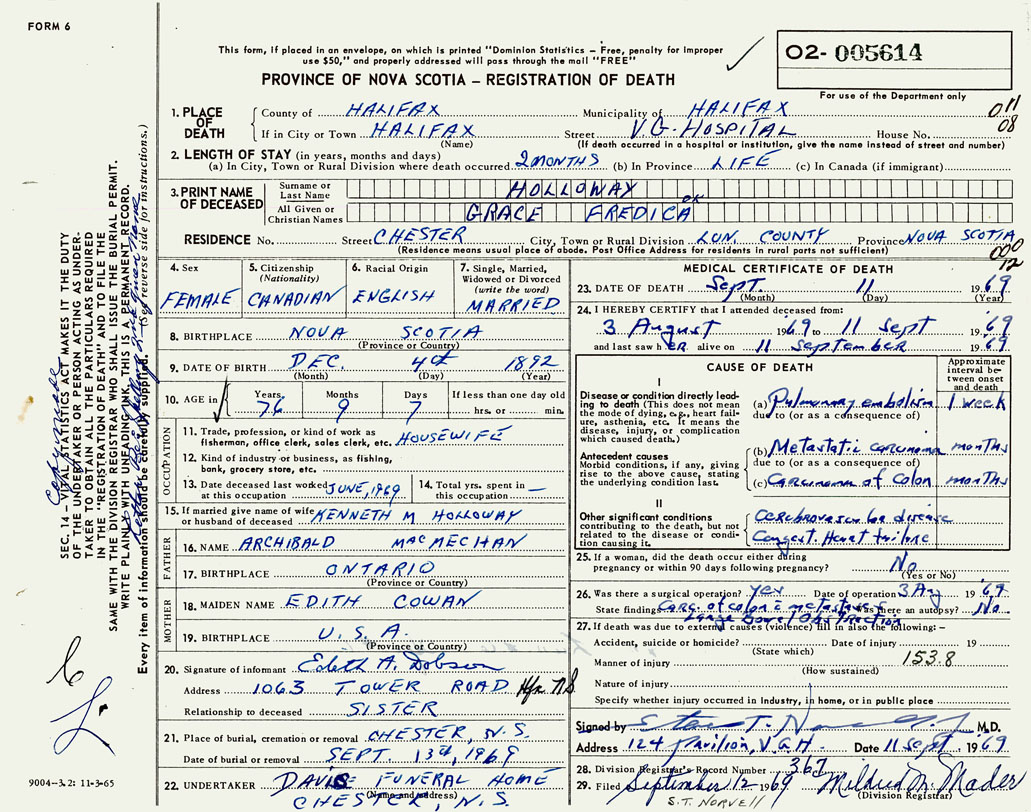 FORM 6
This form, if placed in an envelope, on which is printed "Dominion Statistics – Free, penalty for improper
use $50," and properly addressed will pass through the mail "FREE"
O2- 005614
PROVINCE OF NOVA SCOTIA – REGISTRATION OF DEATH
For use of the Department only
1. PLACE OF DEATH
County of HALIFAX Municipality of HALIFAX 011
If in City or Town HALIFAX Street V.G. HOSPITAL House No. 08
(Name) (If death occurred in a hospital or institution, give the name instead of street and number)
2. LENGTH OF STAY (in years, months and days)
(a) In City, Town or Rural Division where death occurred 2 MONTHS (b) In Province LIFE (c) In Canada (if immigrant)
3. PRINT NAME OF DECEASED
Surname or Last Name HOLLOWAY
All Given or Christian Names GRACE FREDICA OK
RESIDENCE No. Street CHESTER City, Town or Rural Division LUN. COUNTY Province NOVA SCOTIA
(Residence means usual place of abode. Post Office Address for residents in rural parts not sufficient)
000
12
4. Sex
FEMALE
5. Citizenship
(Nationality)
CANADIAN
6. Racial Origin
ENGLISH
7. Single, Married,
Widowed or Divorced
(write the word)
MARRIED
8. BIRTHPLACE NOVA SCOTIA
(Province or Country)
9. DATE OF BIRTH DEC. 4th 1892
(Month) (Day) (Year)
10. AGE in
Years 76
Months 9
Days 7
If less than one day old
hrs. or min.
OCCUPATION
11. Trade, profession, or kind of work as
fisherman, office clerk, sales clerk, etc. HOUSEWIFE
12. Kind of industry or business, as fishing,
bank, grocery store, etc.
13. Date deceased last worked
at this occupation JUNE, 1969
14. Total yrs. spent in
this occupation —
15. If married give name of wife
or husband of deceased KENNETH M HOLLOWAY
FATHER
16. NAME ARCHIBALD MACMECHAN
17. BIRTHPLACE ONTARIO
(Province or Country)
MOTHER
18. MAIDEN NAME EDITH COWAN
19. BIRTHPLACE U.S.A.
(Province or Country)
20. Signature of informant Edith A. Dobson
Address 1063 TOWER ROAD Hfx NS
Relationship to deceased SISTER
21. Place of burial, cremation or removal CHESTER, N.S.
Date of burial or removal SEPT. 13th, 1969
22. UNDERTAKER DAVIS FUNERAL HOME
(Name and address)
CHESTER, N.S.
MEDICAL CERTIFICATE OF DEATH
23. DATE OF DEATH Sept. 11 1969
(Month) (Day) (Year)
24. I HEREBY CERTIFY that I attended deceased from:
3 August 1969 to 11 Sept 1969
and last saw her alive on 11 September 1969
CAUSE OF DEATH
Approximate
interval be-
tween onset
and death
I
Disease or condition directly lead-
ing to death (This does not mean
the mode of dying, e.g., heart fail-
ure, asthenia, etc. It means the
disease, injury, or complication
which caused death.)
(a) Pulmonary embolism 1 week
due to (or as a consequence of)
Antecedent causes
Morbid conditions, if any, giving
rise to the above cause, stating
the underlying condition last.
(b) Metastatic carcinoma months
due to (or as a consequence of)
(c) Carcinoma of Colon months
II
Other significant conditions
contributing to the death, but not
related to the disease or condi-
tion causing it.
Cerebrovascular disease
Congest. Heart failure
25. If a woman, did the death occur either during
pregnancy or within 90 days following pregnancy? No
(Yes or No)
26. Was there a surgical operation? Yes Date of operation 3 Aug 1969
State findings Carc. of colon & metastases Was there an autopsy? No
Large Bowel Obstruction
27. If death was due to external causes (violence) fill in also the following:–
Accident, suicide or homicide? Date of injury 19
(State which)
Manner of injury 153.8
(How sustained)
Nature of injury
Specify whether injury occurred in Industry, in home, or in public place
Signed by M.D.
Address 124 Pavilion, V.G.H. Date 11 Sept. 1969
28. Division Registrar's Record Number 367
29. Filed September 12 1969 Mildred M. Mader
(Division Registrar)
S.T. NORVELL
SEC. 14 – VITAL STATISTICS ACT MAKES IT THE DUTY
OF THE UNDERTAKER OR PERSON ACTING AS UNDER-
TAKER TO OBTAIN ALL THE PARTICULARS REQUIRED
IN THE "REGISTRATION OF DEATH" AND TO FILE THE
SAME WITH THE DIVISION REGISTRAR WHO SHALL ISSUE THE BURIAL PERMIT.
WRITE PLAINLY WITH UNFADING INK, THIS IS A PERMANENT RECORD.
Every item of information should be carefully supplied. (See reverse side for instructions.)
9004-3.2: 11-3-65